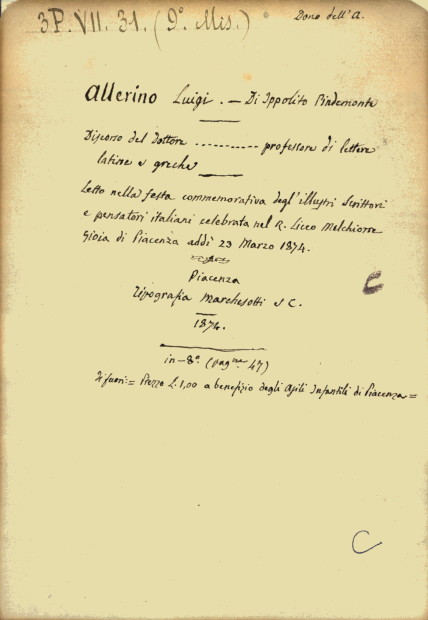 3P. VII. 31. (9.° Mis.)
Dono dell'A.
Allerino Luigi. — Di Ippolito Pindemonte
Discorso del Dottore ........... professore di lettere
latine e greche
Letto nella festa commemorativa degl'illustri Scrittori
e pensatori italiani celebrata nel R. Liceo Melchiorre
Gioia di Piacenza addì 23 Marzo 1874.
Piacenza
Tipografia Marchesotti e C.
1874.
in-8.° (pag.ne 47)
Di fuori: = Prezzo L. 1,00 a benefizio degli Asili Infantili di Piacenza =
C
C